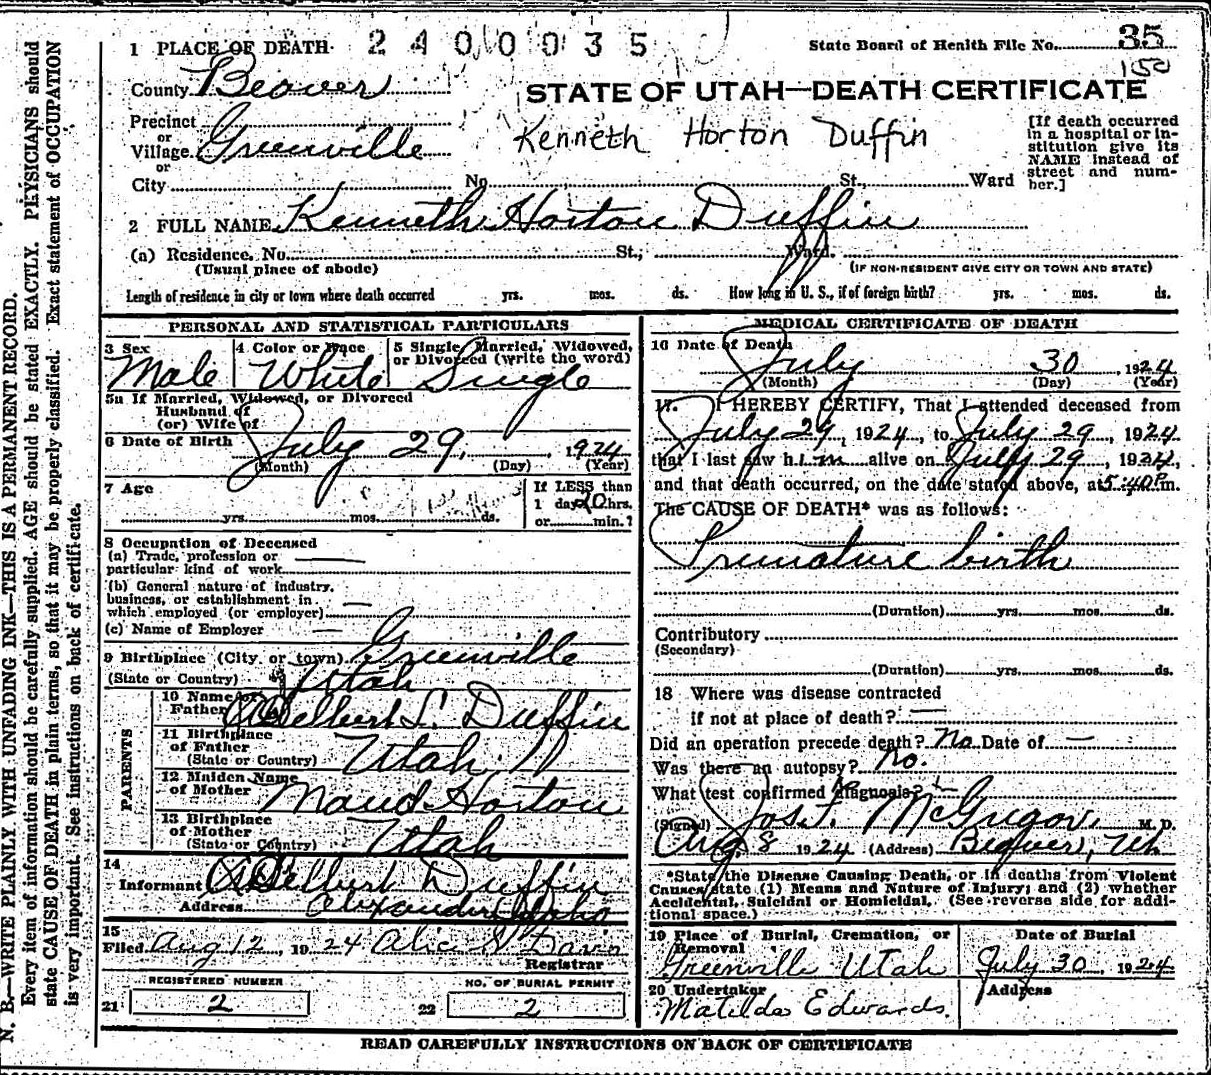 1 PLACE OF DEATH 2400035 State Board of Health File No. 35
150
County Beaver
STATE OF UTAH—DEATH CERTIFICATE
Precinct
or
Village Greenville
or
City No. St., Ward
Kenneth Horton Duffin
[If death occurred
in a hospital or in-
stitution give its
NAME instead of
street and num-
ber.]
2 FULL NAME Kenneth Horton Duffin
(a) Residence. No. St., Ward.
(Usual place of abode) (IF NON-RESIDENT GIVE CITY OR TOWN AND STATE)
Length of residence in city or town where death occurred yrs. mos. ds. How long in U. S., if of foreign birth? yrs. mos. ds.
PERSONAL AND STATISTICAL PARTICULARS
3 Sex 4 Color or Race 5 Single, Married, Widowed,
or Divorced (write the word)
Male White Single
5a If Married, Widowed, or Divorced
Husband of
(or) Wife of
6 Date of Birth July 29, 1924
(Month) (Day) (Year)
7 Age If LESS than
1 day 20 hrs.
yrs. mos. ds. or min.?
8 Occupation of Deceased
(a) Trade, profession or
particular kind of work
(b) General nature of industry,
business, or establishment in
which employed (or employer)
(c) Name of Employer
9 Birthplace (City or town) Greenville
(State or Country) Utah
PARENTS
10 Name of
Father Delbert L. Duffin
11 Birthplace
of Father
(State or Country) Utah
12 Maiden Name
of Mother Maud Horton
13 Birthplace
of Mother
(State or Country) Utah
14
Informant Delbert Duffin
Address Alexander Idaho
15
Filed Aug 12 1924 Alice Davis
Registrar
REGISTERED NUMBER NO. OF BURIAL PERMIT
21 2 22 2
MEDICAL CERTIFICATE OF DEATH
16 Date of Death July 30, 1924
(Month) (Day) (Year)
17. I HEREBY CERTIFY, That I attended deceased from
July 29, 1924, to July 29, 1924
that I last saw him alive on July 29, 1924,
and that death occurred, on the date stated above, at 5:40 P.m.
The CAUSE OF DEATH* was as follows:
Premature birth
(Duration) yrs. mos. ds.
Contributory
(Secondary)
(Duration) yrs. mos. ds.
18 Where was disease contracted
if not at place of death? —
Did an operation precede death? No Date of —
Was there an autopsy? No.
What test confirmed diagnosis?
(Signed) Jos. F. McGregor M. D.
Aug. 8 1924 (Address) Beaver, Ut.
*State the Disease Causing Death, or in deaths from Violent
Causes, state (1) Means and Nature of Injury; and (2) whether
Accidental, Suicidal or Homicidal. (See reverse side for addi-
tional space.)
19 Place of Burial, Cremation, or
Removal Date of Burial
Greenville Utah July 30, 1924
20 Undertaker Address
Matilda Edwards.
READ CAREFULLY INSTRUCTIONS ON BACK OF CERTIFICATE
N. B.—WRITE PLAINLY WITH UNFADING INK—THIS IS A PERMANENT RECORD.
Every item of information should be carefully supplied. AGE should be stated EXACTLY. PHYSICIANS should
state CAUSE OF DEATH in plain terms, so that it may be properly classified. Exact statement of OCCUPATION
is very important. See instructions on back of certificate.